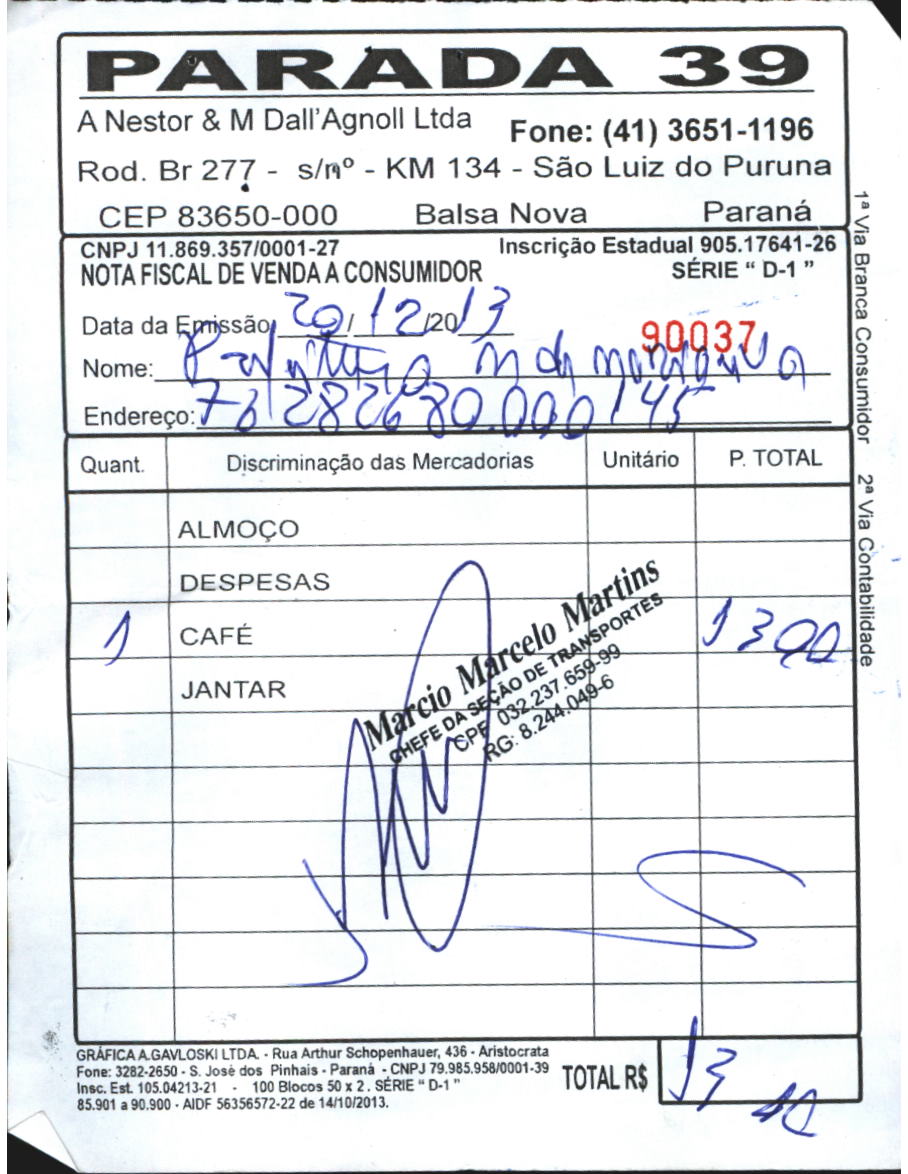 PARADA 39
A Nestor & M Dall'Agnoll Ltda Fone: (41) 3651-1196
Rod. Br 277 - s/nº - KM 134 - São Luiz do Puruna
CEP 83650-000 Balsa Nova Paraná
CNPJ 11.869.357/0001-27 Inscrição Estadual 905.17641-26
NOTA FISCAL DE VENDA A CONSUMIDOR SÉRIE “ D-1 ”
Data da Emissão 20/12/2013
90037
Nome:
Endereço:
Quant. Discriminação das Mercadorias Unitário P. TOTAL
ALMOÇO
DESPESAS
1 CAFÉ 13 00
JANTAR
Marcio Marcelo Martins
CHEFE DA SEÇÃO DE TRANSPORTES
CPF 032.237.659-99
RG: 8.244.049-6
GRÁFICA A.GAVLOSKI LTDA. - Rua Arthur Schopenhauer, 436 - Aristocrata
Fone: 3282-2650 - S. José dos Pinhais - Paraná - CNPJ 79.985.958/0001-39
Insc. Est. 105.04213-21 - 100 Blocos 50 x 2. SÉRIE “ D-1 ”
85.901 a 90.900 - AIDF 56356572-22 de 14/10/2013.
TOTAL R$ 13
1ª Via Branca Consumidor 2ª Via Contabilidade